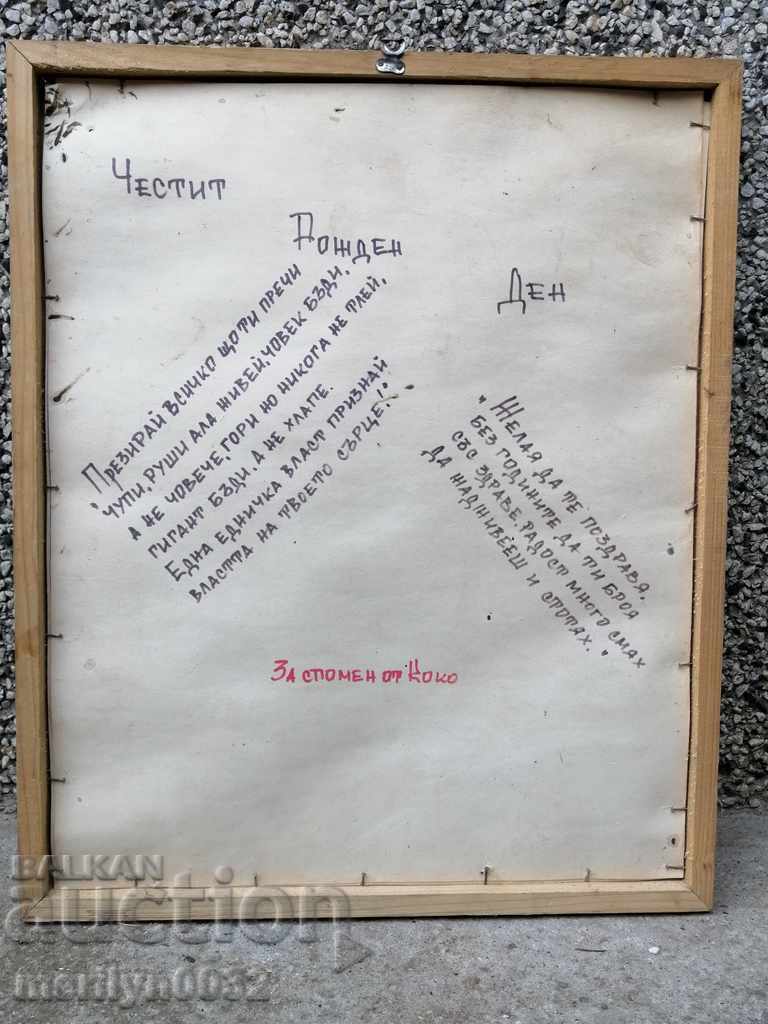 Честит
Рожден
Ден
"Презирай всичко що ти пречи
чупи, руши ала живей, човек бъди,
а не човече, гори но никога не тлей,
гигант бъди, а не хлапе.
Една едничка власт признай
властта на твоето сърце!"
"Желая да те поздравя.
без годините да ти броя
със здраве, радост много смях
да надживееш и стотях."
За спомен от Коко
BALKAN
auction
merilyn0032